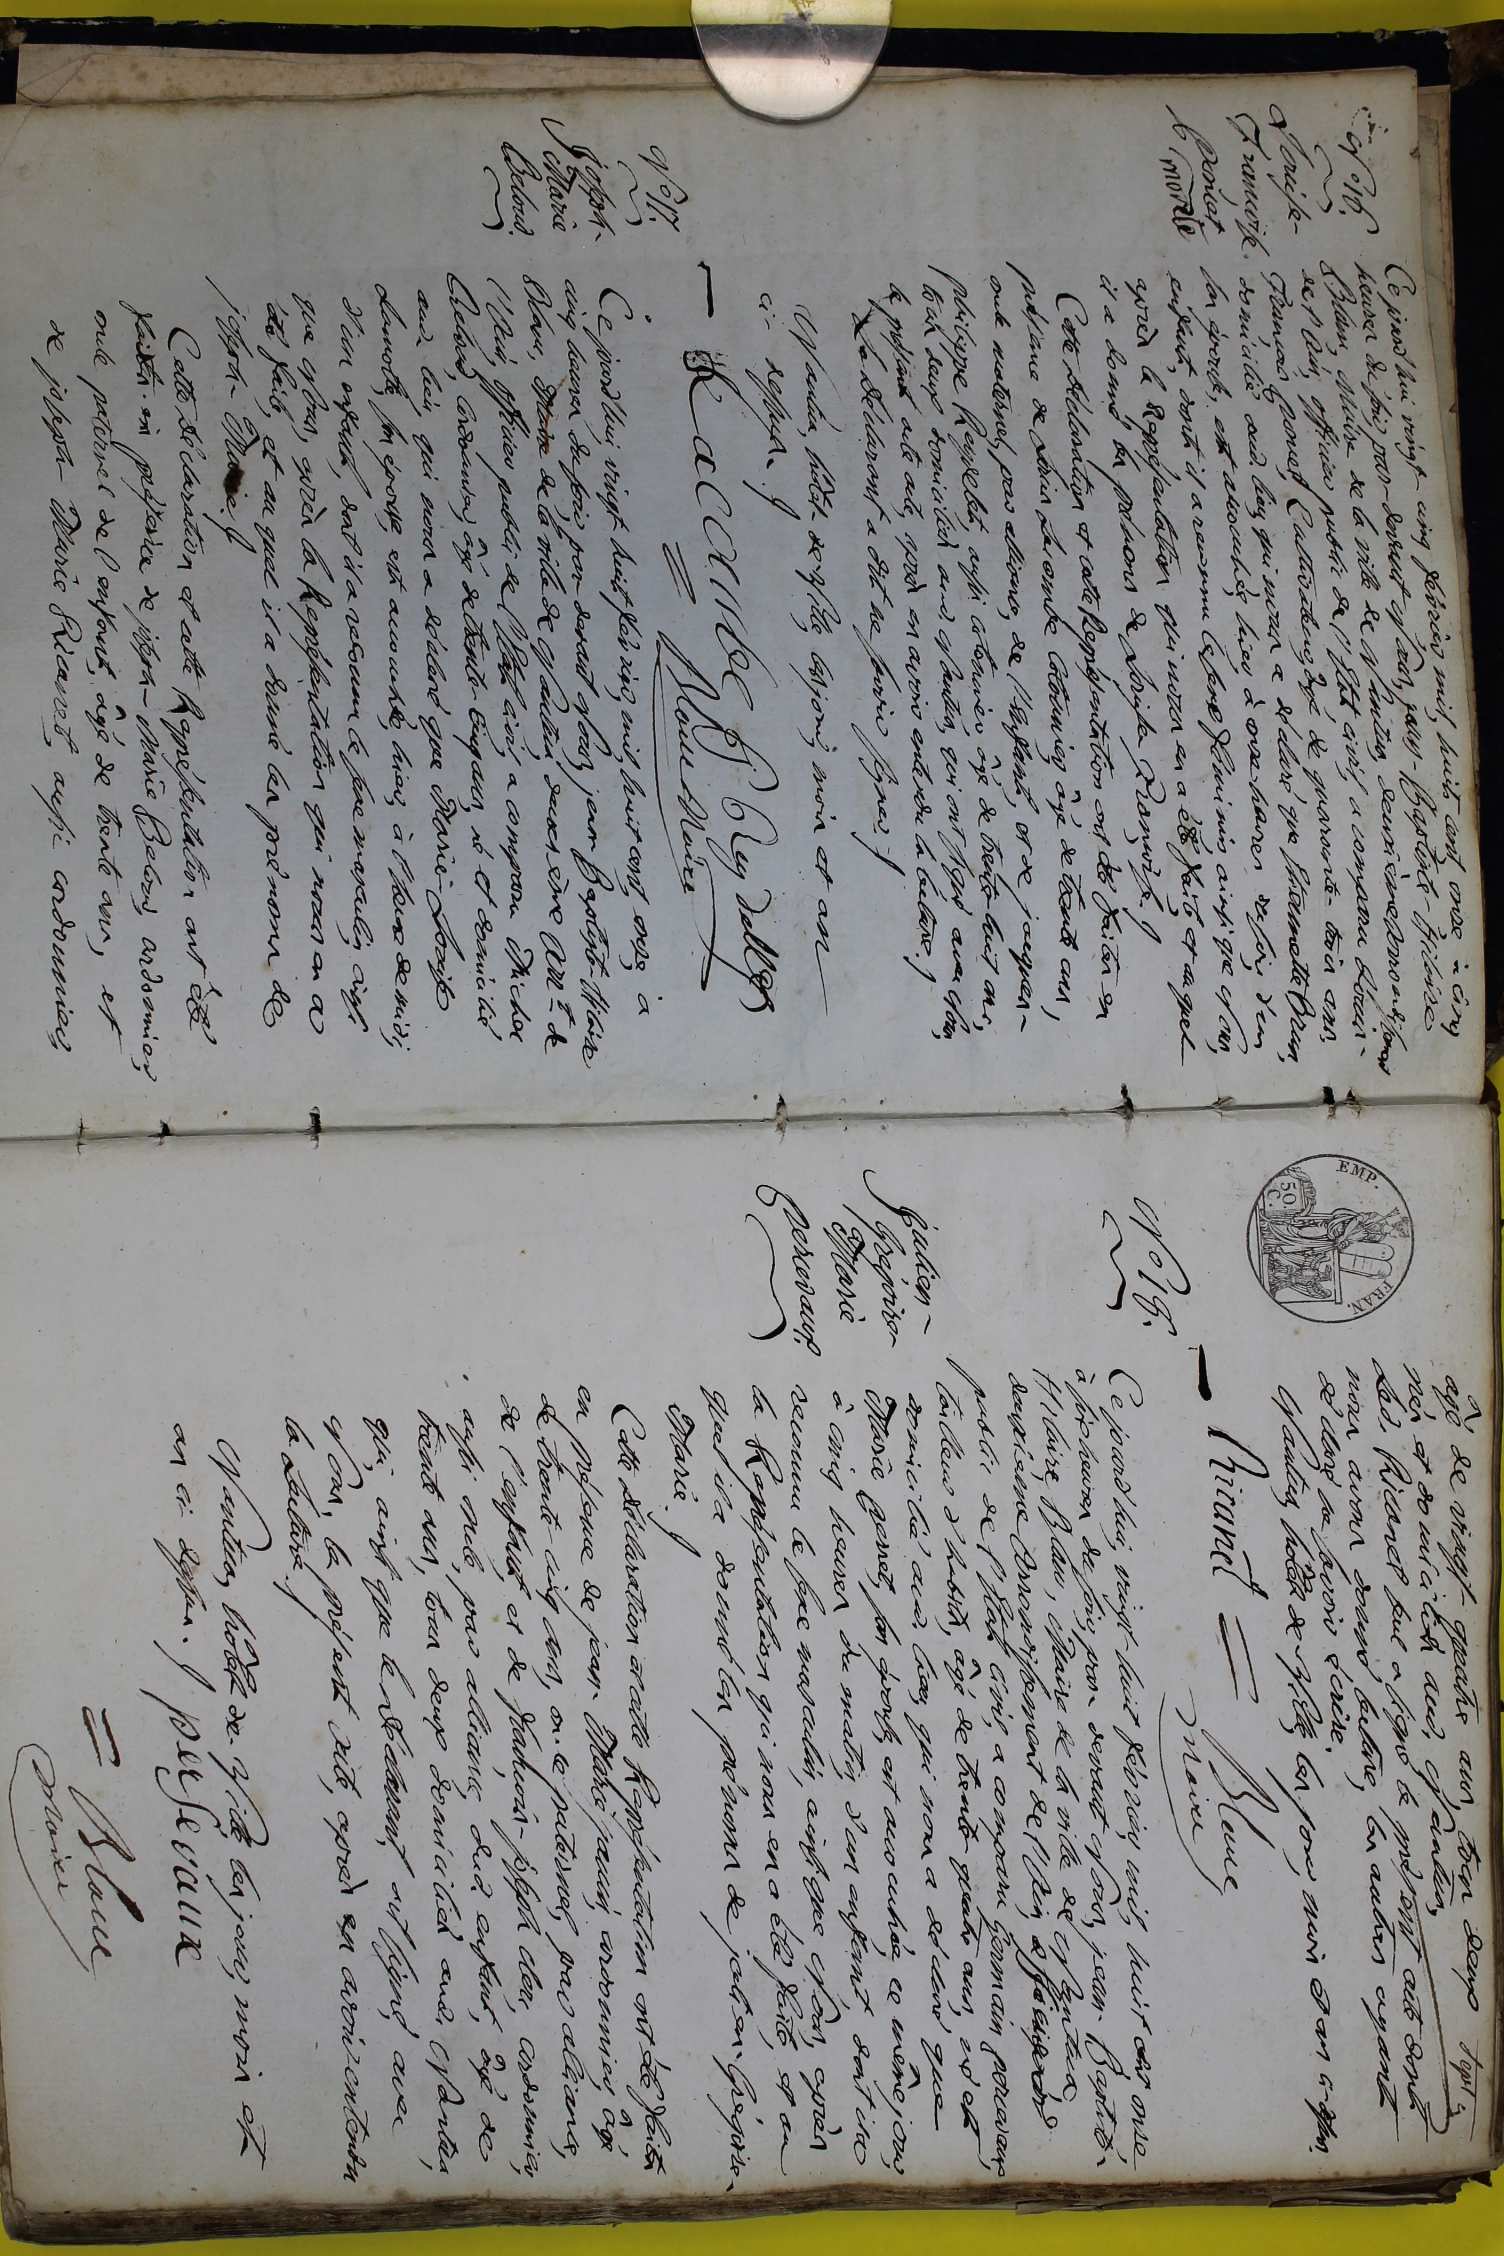 N.° 16.
Louise-
Françoise
Poncet
morte
Ce jourd'hui vingt-cinq février mil huit cent onze à cinq
heures du soir, par-devant Nous, jean-Baptiste-Hilaire
Blanc, Maire de la ville de Nantua, deuxième arrondissement
de l'Ain, officier public de l'Etat civil, a comparu Louis-
François Poncet, âgé de quarante-trois ans,
domicilié aud. lieu, qui nous a déclaré que Brun,
son épouse, est accouchée hier à onze heures du soir, d'un
enfant, dont il a reconnu le sexe féminin, ainsi que Nous,
après la Représentation qui nous en a été faite et auquel
il a donné les prénoms de Louise Françoise.
Cette déclaration et cette Représentation ont été faites en
présence de âgé de trente ans,
oncle maternel par alliance, de l'enfant, et de jacques-
philippe Reydellet, aussi âgé de trente huit ans,
tous deux domiciliés aud. Nantua, qui ont signé avec Nous,
le présent acte, après en avoir entendu la lecture.
Le déclarant a dit ne savoir signer.
Nantua, hôtel de Ville, les jour, mois et an
ci-dessus.
Lacombe P Reydellet
Blanc Maire
N.° 17.
Joseph-
Marie
Beloud.
Ce jourd'hui vingt huit février, mil huit cent onze, à
cinq heures du soir, par-devant Nous, jean Baptiste-Hilaire
Blanc, Maire de la ville de Nantua, deuxième arr.t de
l'Ain, officier public de l'Etat civil, a comparu Michel
Beloud, cordonnier, âgé de trente-cinq ans, né et domicilié
aud. lieu, qui nous a déclaré que Marie-Louise
son épouse, est accouchée, hier, à l'heure de midi,
d'un enfant, dont il a reconnu le sexe masculin, ainsi
que Nous, après la Représentation qui nous en a
été faite, et auquel il a donné les prénoms de
joseph-Marie.
Cette déclaration et cette Représentation ont été
faites en présence de joseph-Marie Beloud, cordonnier,
oncle paternel de l'enfant, âgé de trente ans, et
de joseph-Marie Ricanet, aussi cordonnier,
EMP. FRAN.
50 C.
âgé de vingt-quatre ans, tous deux
nés et domiciliés aud. Nantua,
Led. Ricanet seul a signé le présent acte dont
nous avons donné lecture, les autres ayant
déclaré ne savoir écrire.
Nantua, hôtel de Ville, les jour, mois et an ci-dessus.
Ricanet
Blanc
Maire
N.° 18.
julien-
Grégoire-
Marie
Percevaux.
Ce jourd'hui, vingt-huit février, mil huit cent onze,
à six heures du soir, par-devant Nous, jean-Baptiste
Hilaire Blanc, Maire de la ville de Nantua
deuxième Arrondissement de l'Ain, officier
public de l'Etat civil, a comparu Germain percevaux,
tailleur d'habits, âgé de trente quatre ans, né et
domicilié aud. lieu, qui nous a déclaré que
Marie son épouse, est accouchée ce même jour,
à cinq heures du matin, d'un enfant dont il a
reconnu le sexe masculin, ainsi que Nous, après
la Représentation qui nous en a été faite, et au
quel il a donné les prénoms de julien-Grégoire-
Marie.
Cette déclaration et cette Représentation ont été faites
en présence de jean-Marie cordonnier, âgé
de trente cinq ans, oncle paternel, par alliance,
de l'enfant, et de joseph cordonnier,
aussi oncle, par alliance, dud. enfant, âgé de
trente ans, tous deux domiciliés aud. Nantua,
qui, ainsi que le déclarant, ont signé avec
Nous, le présent acte, après en avoir entendu
la lecture.
Nantua, hôtel de Ville les jour, mois et
an ci-dessus. perSevaux
Blanc
Maire